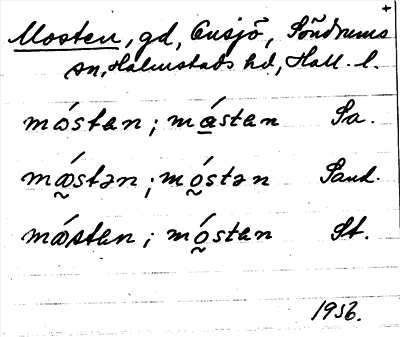 +
Mosten, gd, Gusjö, Söndrums
sn, Halmstads hd, Hall. l.
mɷ́stan; mástan Sa.
mɷ̰́stən; mó̰stən Sand.
mɷ́stan; mó̰stan St.
1956.